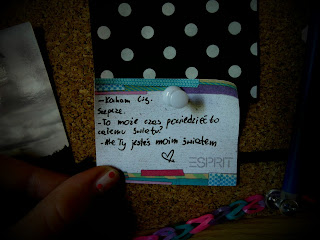 - Kocham Cię.
Szepcze.
- To może czas powiedzieć to
całemu światu?
- Ale Ty jesteś moim światem
ESPRIT